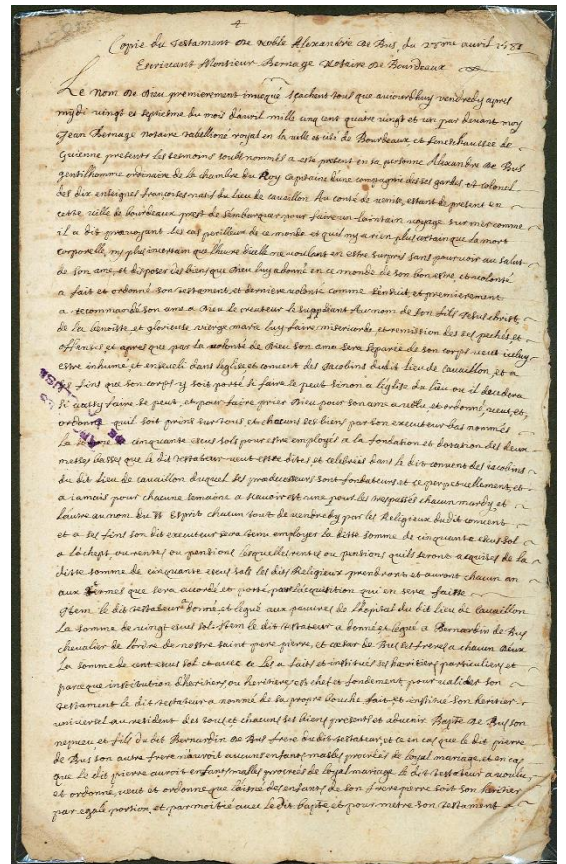 Copie du Testament de Noble Alexandre de Bus, du 27me avril 1581
Escrivant Monsieur Bernage Notaire de Bourdeaux
Le nom de Dieu premierement invoqué sçachent tous que aujourdhuy vendredy apres
mydi vingt et septiesme du mois d'avril mille cinq cent quatre vingt et un par devant moy
Jean Bernage notaire tabellioné royal en la ville et cité de Bourdeaux et seneschaussee de
Guienne presents les tesmoins soubs nommés a esté present en sa personne Alexandre de Bus
gentilhomme ordinaire de la chambre du Roy capitaine d'une compagnie de ses gardes et colonel
des dix enseignes françoises natif du lieu de cavaillon Au conté de venisse, estant de present en
cette ville de bourdeaux, prest de s'embarquer pour faire un lointain voyage sur mer comme
il a dit prevoyant les cas perilleux de ce monde et quil ny a rien plus certain que la mort
corporelle, ny plus incertain que l'heure d'icelle ne voulant en estre surpris sans pourvoir au salut
de son ame, et disposer des biens que Dieu luy a donné en ce monde de son bon estre, et volonté
a fait et ordonné son testament, et derniere volonte comme s'ensuit, et premierement
a recommandé son ame a Dieu le createur le suppliant Au nom de son fils Jesus christ
de la benoiste et glorieuse vierge marie luy faire misericorde et remission de ses pechés et
offences et apres que par la volonté de Dieu son ame sera separee de son corps veut iceluy
estre inhumé et enseveli dans leglise et convent des Jacobins dudit lieu de Cavaillon, et a
ses fins que son corps y soit porté si faire le peut sinon a leglise du lieu ou il decedera
si aussy faire se peut, et pour faire prier Dieu pour son ame a voulu et ordonné, veut, et
ordonne quil soit prins sur tous et chacuns ses biens par son executeur bas nommés
La somme de cinquante escus sols pour estre employés a la fondation et dotation des deux
messes basses que le dit testateur veut estre dites et celebrées dans le dit convent des iacobins
du dit lieu de cavaillon duquel ses predecesseurs sont fondateurs et ce perpetuellement, et
a iamais pour chacune semaine a scavoir est une pour les trespassés chacun mardy et
l'autre au nom du St Esprit chacun iour de vendredy par les Religieux dudit convent
et a ses fins son dit executeur sera tenu employer la ditte somme de cinquante escus sol
a l'achept ou rentes ou pensions lesquelles rentes ou pensions quils seront acquises de la
ditte somme de cinquante escus sols les dits Religieux prendront et auront chacun an
aux termes que sera acordé et porté par lacquisition qui en sera faitte
Item le dit testateur a donné, et legué aux pauvres de l'hopital du dit lieu de Cavaillon
La somme de vingt escus sol. Item le dit testateur a donné et legué a Bernardin de Bus
chevalier de l'ordre de nostre saint pere, pierre, et cæsar de Bus ses freres a chacun deux
La somme de cent escus sol et avec ce les a faits et institués ses heritiers particuliers et
parce que institution d'heritiers, ou heritiere est chef et fondement pour valider son
testament le dit testateur a nommé de sa propre bouche fait, et institué son heritier
universel au residu de tous et chacuns ses biens presents et advenir Bapte de Bus son
nepveu et fils du dit Bernardin de Bus frere du dit testateur, et ce en cas que le dit pierre
de Bus son autre frere n'auroit aucuns enfants masles procreés de loyal mariage, et en cas
que le dit pierre auroit enfants masles procreés de loyal mariage le dit testateur a voulu
et ordonné, veut et ordonne que l'aisné des enfants de son frere pierre soit son heritier
par egale portion, et par moitié avec le dit bapte et pour metre son testament a